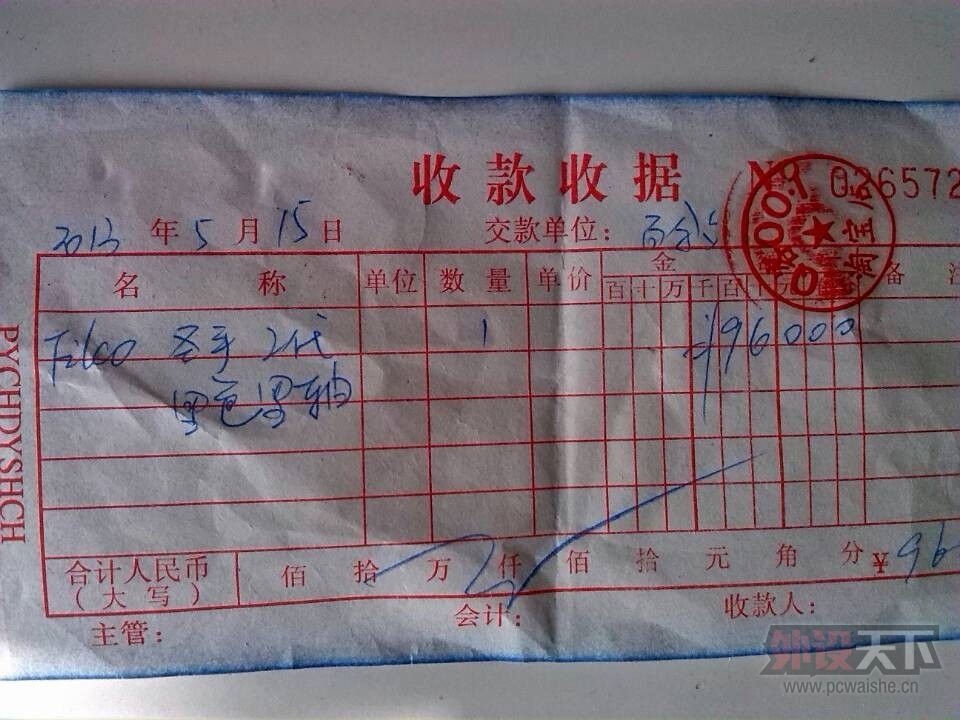 收款收据
026572
2013年5月15日 交款单位:
名称 单位 数量 单价 金 备注
百十万千百
Filco 圣手 2代 1 ¥96000
黑色黑轴
合计人民币 佰拾万仟佰拾元角分¥96
(大写)
主管: 会计: 收款人:
PYCHDYSHCH
淘宝店
外设天下
www.pcwaishe.cn